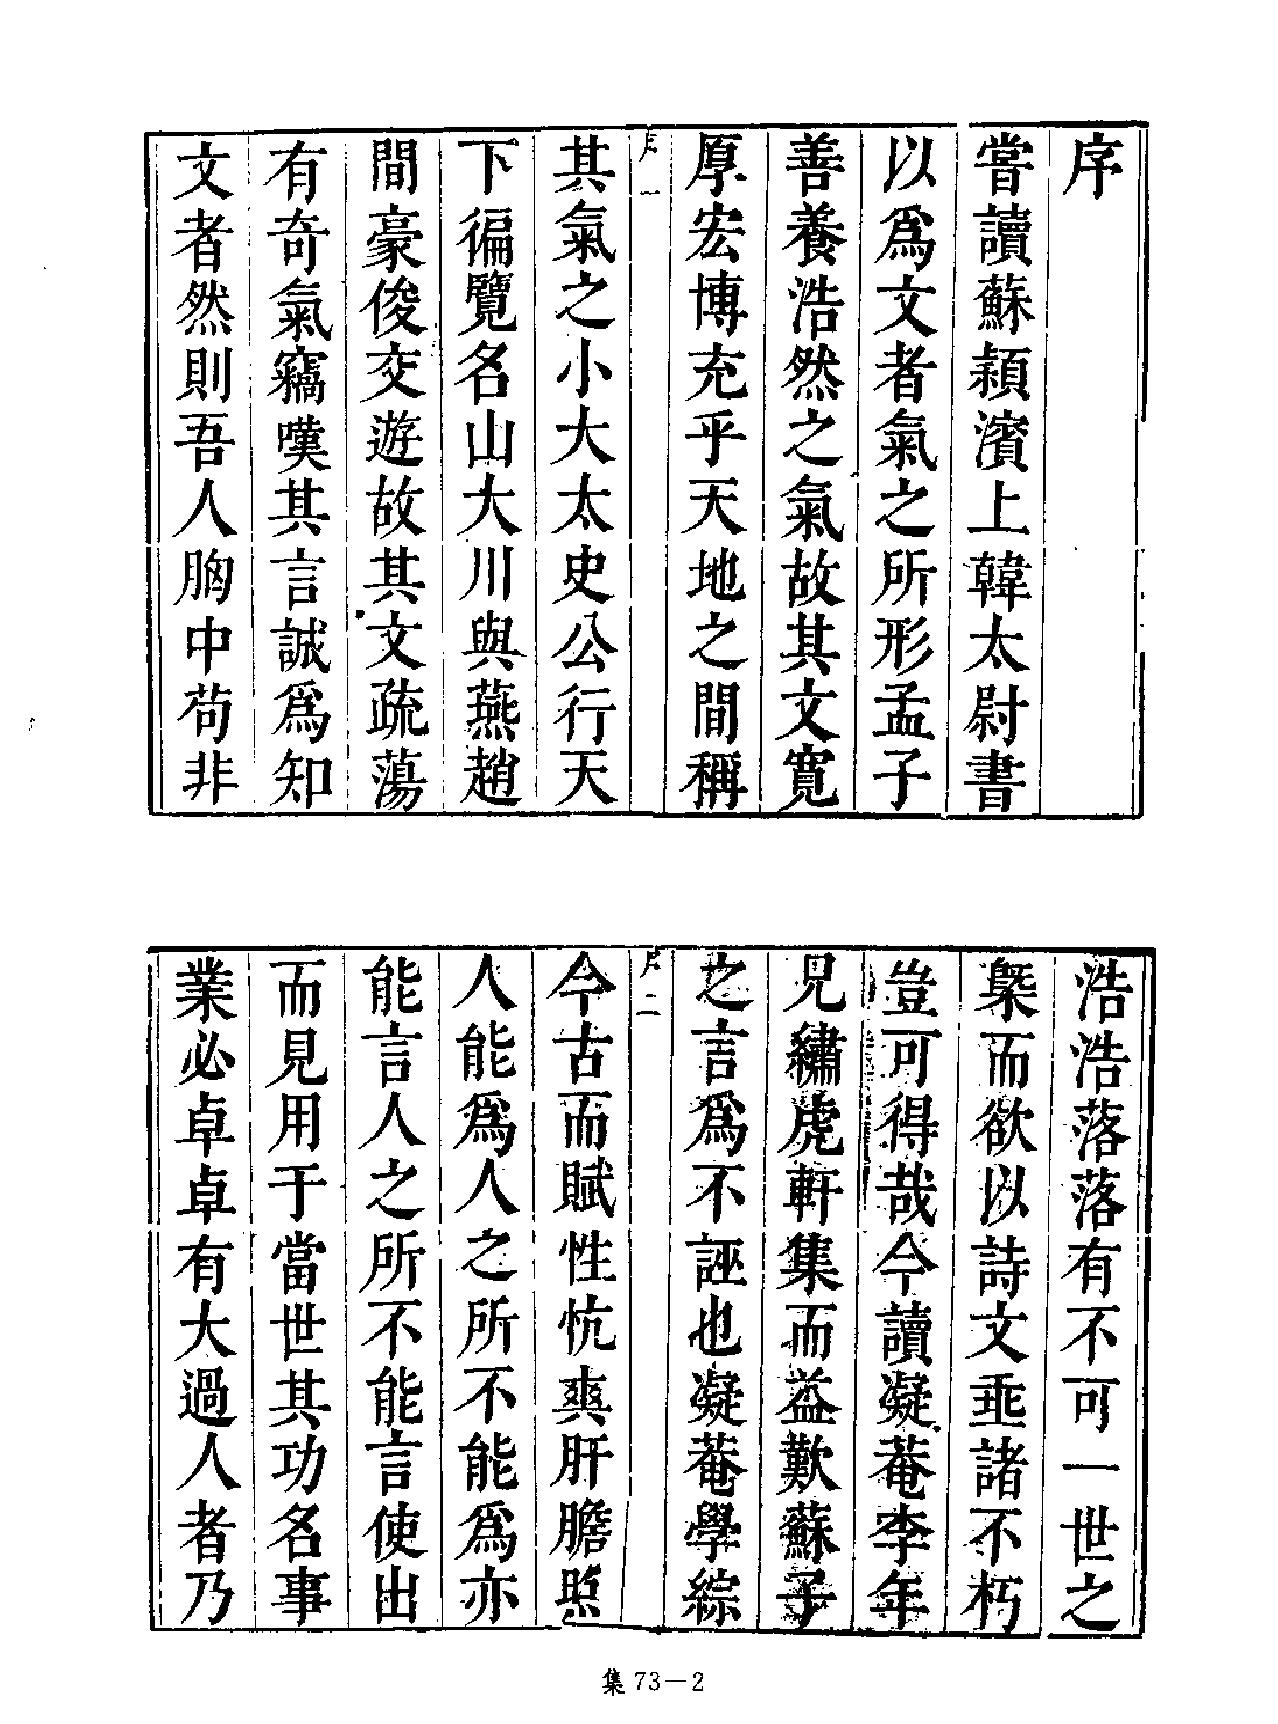 序
嘗讀蘇潁濱上韓太尉書
以爲文者氣之所形孟子
善養浩然之氣故其文寬
厚宏博充乎天地之間稱
序 一
其氣之小大太史公行天
下徧覽名山大川與燕趙
間豪俊交遊故其文疏蕩
有奇氣竊嘆其言誠爲知
文者然則吾人胸中苟非
浩浩落落有不可一世之
槩而欲以詩文垂諸不朽
豈可得哉今讀凝菴李年
兄繡虎軒集而益歎蘇子
之言爲不誣也凝菴學綜
序 二
今古而賦性忼爽肝膽照
人能爲人之所不能爲亦
能言人之所不能言使出
而見用于當世其功名事
業必卓卓有大過人者乃
集 73－2